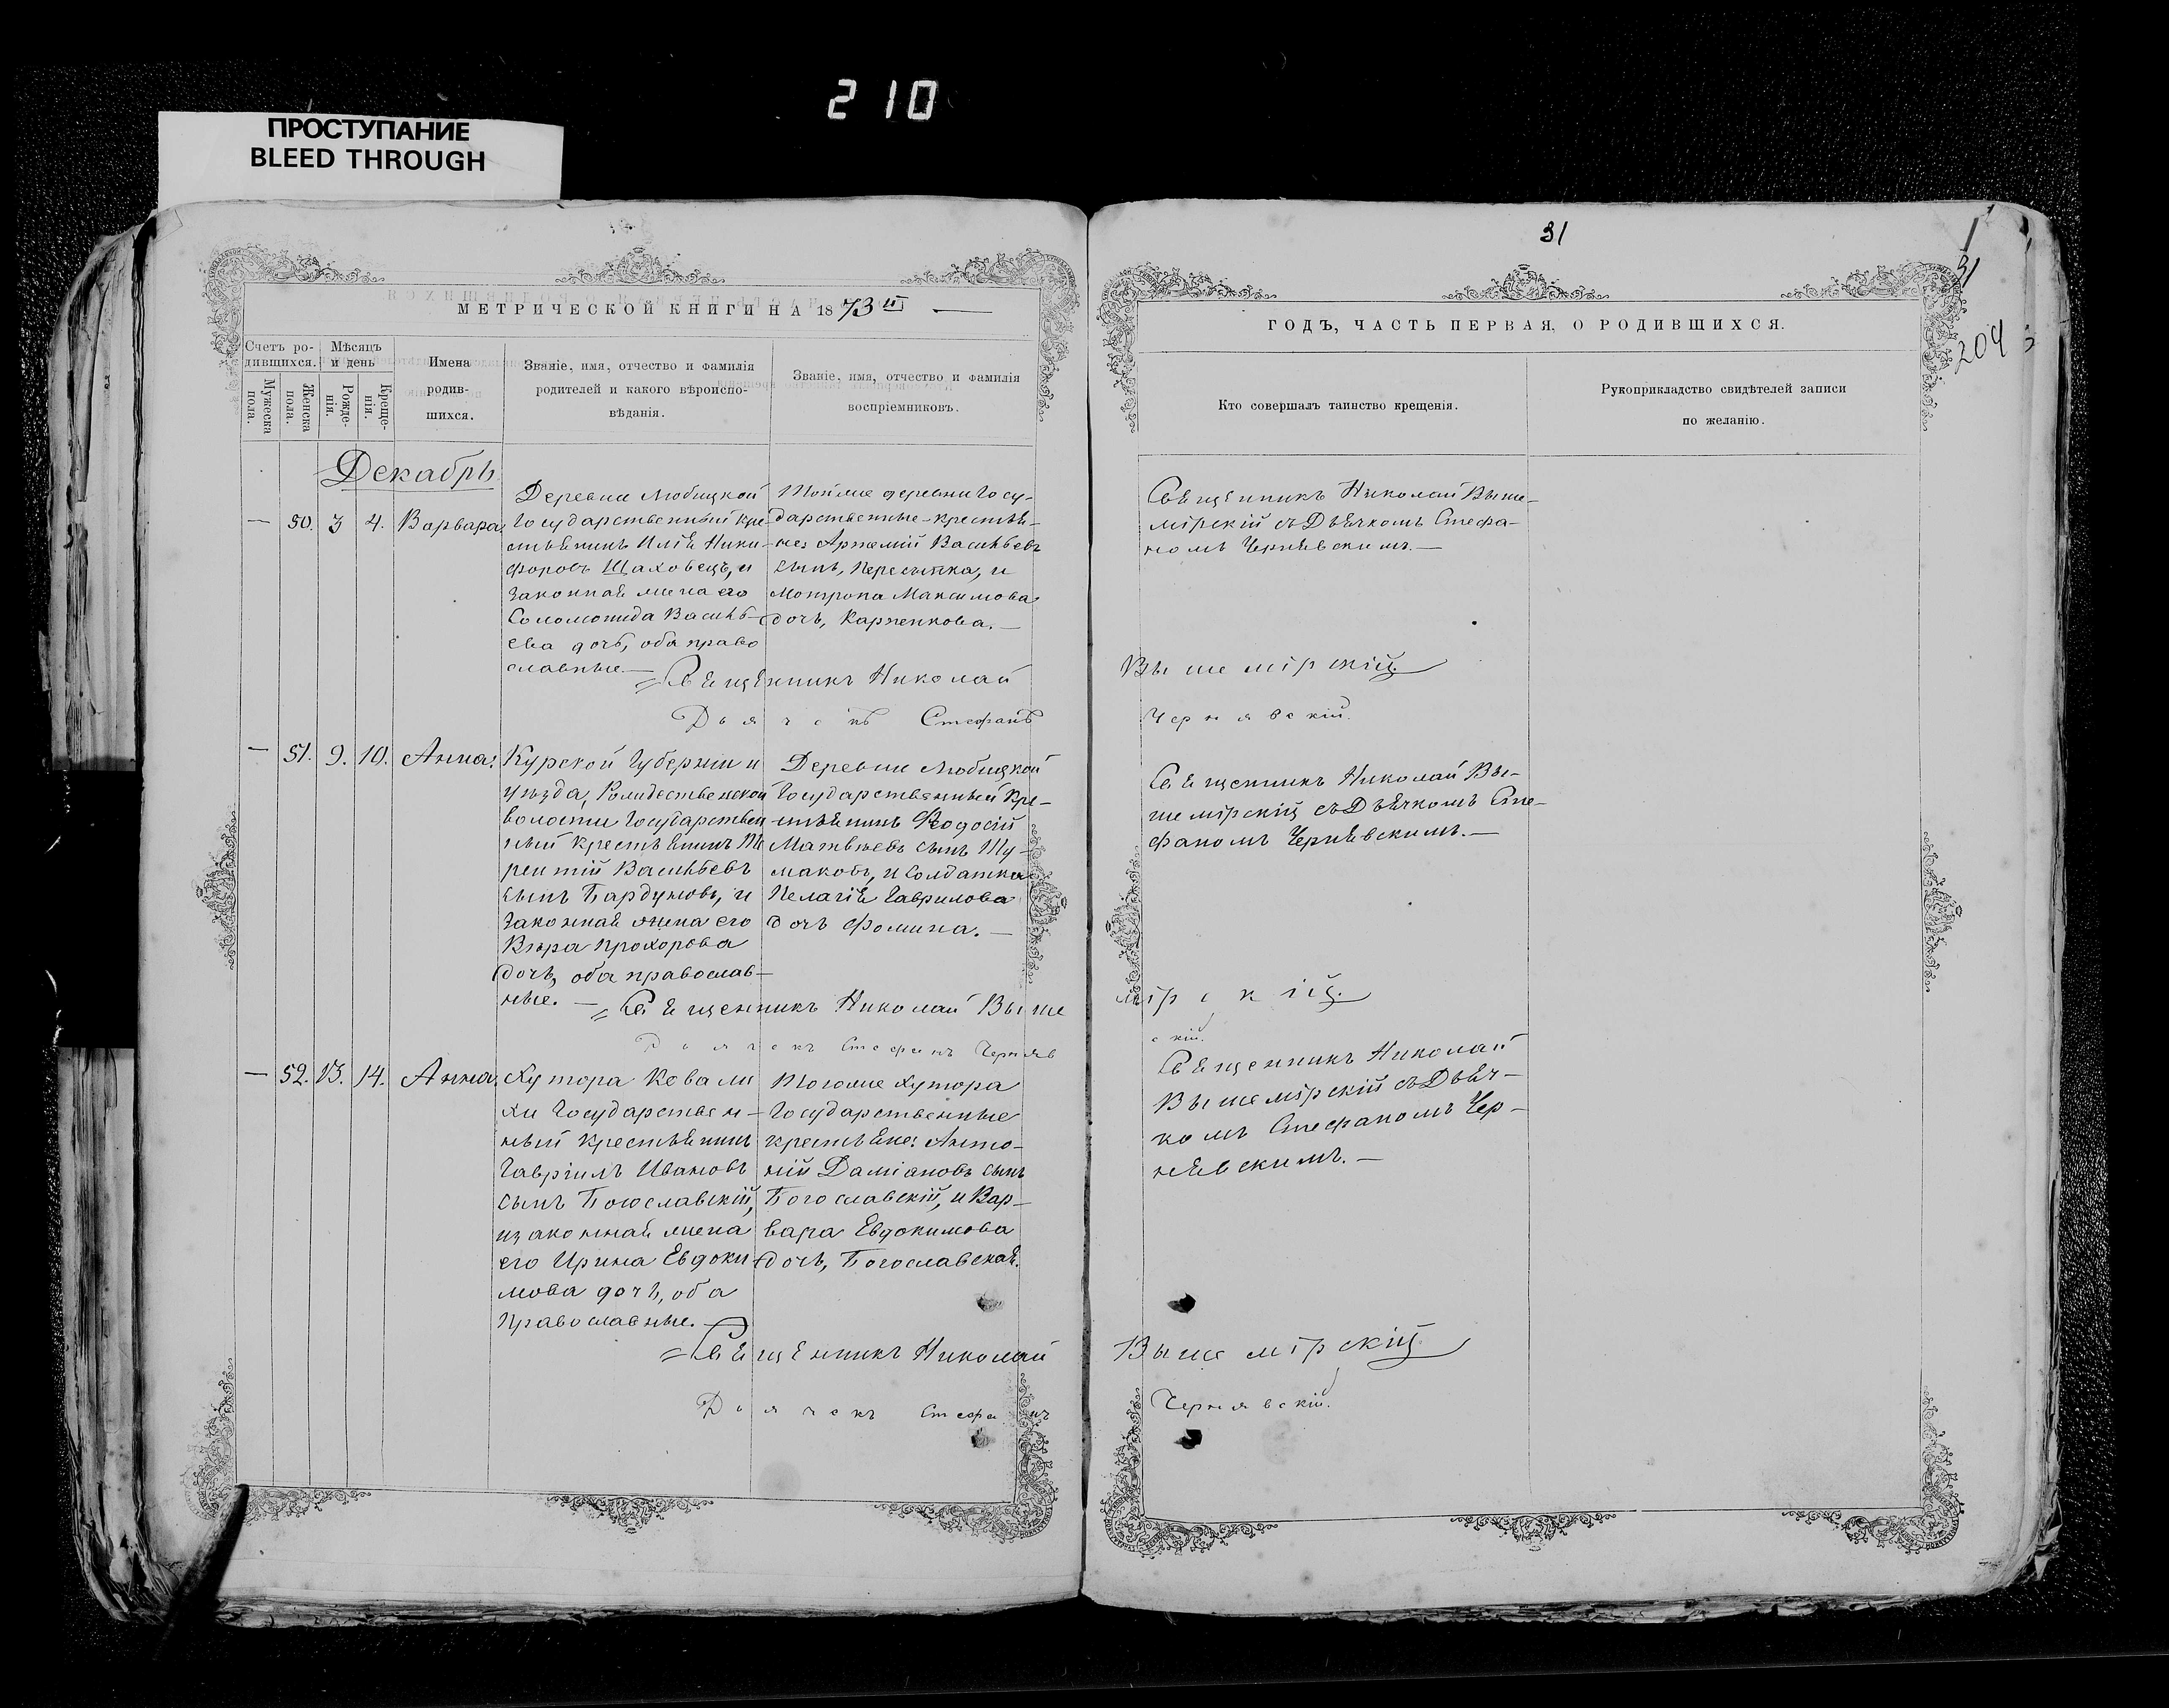 210
ПРОСТУПАНИЕ
BLEED THROUGH
МЕТРИЧЕСКОЙ КНИГИ НА 1873й
Счетъ ро-
дившихся.
Мѣсяцъ
и день
Мужеска
пола.
Женска
пола.
Рожде-
нія.
Креще-
нія.
Имена
родив-
шихся.
Званіе, имя, отчество и фамилія
родителей и какого вѣроиспо-
вѣданія.
Званіе, имя, отчество и фамилія
воспріемниковъ.
Декабрь
— 50. 3 4. Варвара,
Деревни Любицкой
Государственный Кре-
стьянинъ Илія Ники-
форовъ Шаховецъ, и
законная жена его
Соломонида Василь-
ева дочь, оба право
славные —
Тойже деревни Госу-
дарственные крестья-
не: Артемій Васильевъ
сынъ, Пересыпка, и
Мотрона Максимова
дочь, Карпенкова. —
Священникъ Николай
Дьячекъ Стефанъ
— 51. 9. 10. Анна.
Курской Губерніи и
уѣзда, Рождественской
волости Государствен
ный крестьянинъ Те
рентій Васильевъ
сынъ Бардуковъ, и
законная жена его
Вѣра Прохорова
дочь, оба православ-
ные. —
Деревни Любицкой
Государственный Кре-
стьянинъ Ѳеодосій
Матвѣевъ сынъ Шу-
маковъ, и Солдатка
Пелагія Гаврилова
дочь Фомина. —
Священникъ Николай Выше
Дьячекъ Стефанъ Черняв
— 52. 13. 14. Анна,
Хутора Ковали
хи Государствен-
ный крестьянинъ
Гавріилъ Ивановъ
сынъ Богославскій,
изаконная жена
его Ирина Евдоки
мова дочь, оба
Православные. —
Тогоже хутора
Государственные
крестьяне: Анто-
ній Даміановъ сынъ
Богославскій, и Вар-
вара Евдокимова
дочь, Богославская.
Священникъ Николай
Дьячекъ Стефанъ
31
31
204
ГОДЪ, ЧАСТЬ ПЕРВАЯ, О РОДИВШИХСЯ.
Кто совершалъ таинство крещенія.
Рукоприкладство свидѣтелей записи
по желанію.
Священникъ Николай Выше-
мірскій съ Дьячкомъ Стефа-
номъ Чернявскимъ. —
Вышемірскій
Чернявскій.
Священникъ Николай Вы-
шемірскій съ Дьячкомъ Сте-
фаномъ Чернявскимъ. —
мірскій.
скій.
Священникъ Николай
Вышемірскій съ Дьяч-
комъ Стефаномъ Чер-
нявскимъ. —
Вышемірскій
Чернявскій.